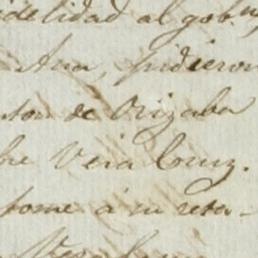 idelidad al gobn
Ana, pidieron
ton de Orizaba
bre Vera Cruz.
tome á su reta-